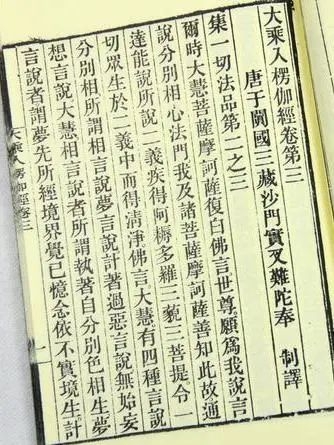 大乘入楞伽經卷第三
唐于闐國三藏沙門實叉難陀奉 制譯
集一切法品第二之三
爾時大慧菩薩摩訶薩復白佛言世尊願爲我說言
說分別相心法門我及諸菩薩摩訶薩善知此故通
達能說所說二義疾得阿耨多羅三藐三菩提令一
切眾生於二義中而得清淨佛言大慧有四種言說
分別相所謂相言說夢言說計著過惡言說無始妄
想言說大慧相言說者所謂執著自分別色相生夢
言說者謂夢先所經境界覺已憶念依不實境生計
大乘入楞伽經卷三
一